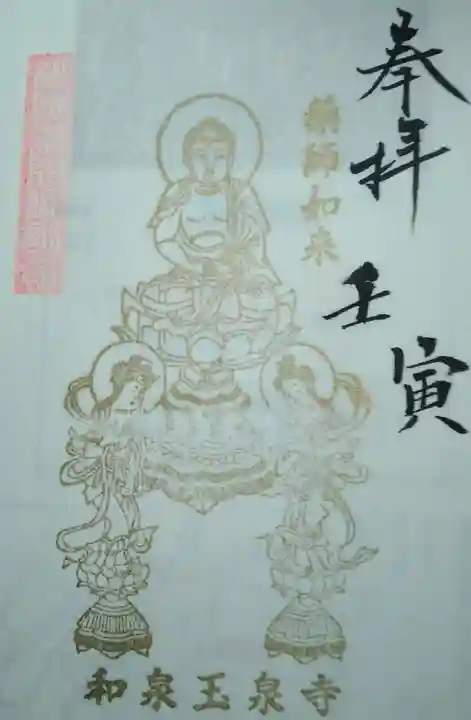 奉拝
壬寅
薬師如来
和泉玉泉寺